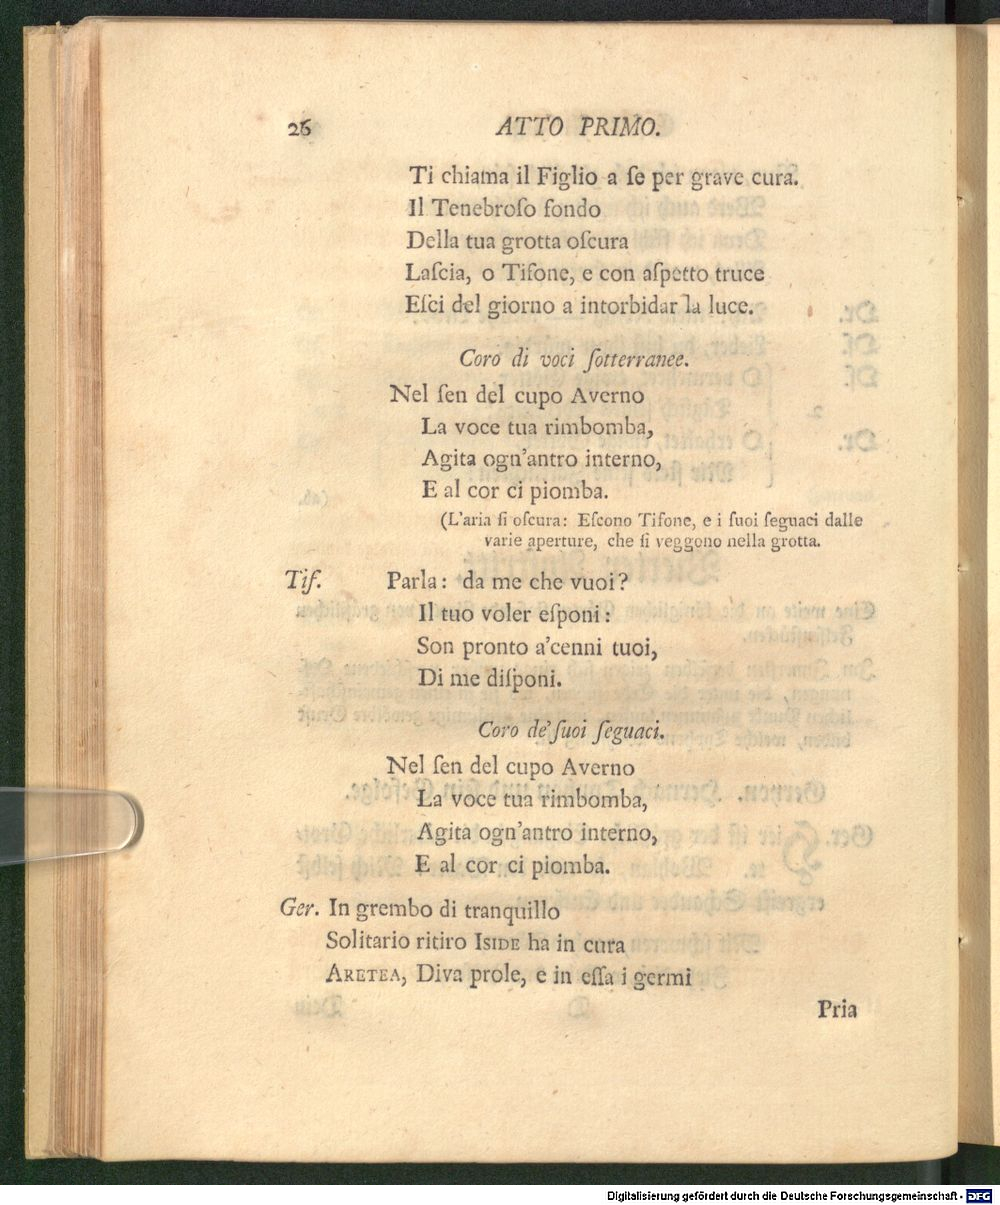 26 ATTO PRIMO.
Ti chiama il Figlio a ſe per grave cura.
Il Tenebroſo fondo
Della tua grotta oſcura
Laſcia, o Tifone, e con aſpetto truce
Eſci del giorno a intorbidar la luce.
Coro di voci ſotterranee.
Nel ſen del cupo Averno
La voce tua rimbomba,
Agita ogn'antro interno,
E al cor ci piomba.
(L'aria ſi oſcura: Eſcono Tifone, e i ſuoi ſeguaci dalle
varie aperture, che ſi veggono nella grotta.
Tif. Parla: da me che vuoi?
Il tuo voler eſponi:
Son pronto a'cenni tuoi,
Di me diſponi.
Coro de'ſuoi ſeguaci.
Nel ſen del cupo Averno
La voce tua rimbomba,
Agita ogn'antro interno,
E al cor ci piomba.
Ger. In grembo di tranquillo
Solitario ritiro ISIDE ha in cura
ARETEA, Diva prole, e in eſſa i germi
Pria
Digitalisierung gefördert durch die Deutsche Forschungsgemeinschaft - DFG